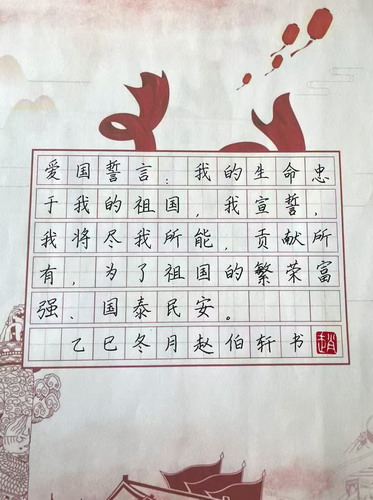 爱国誓言：我的生命忠
于我的祖国，我宣誓，
我将尽我所能，贡献所
有，为了祖国的繁荣富
强、国泰民安。
乙巳冬月赵伯轩书